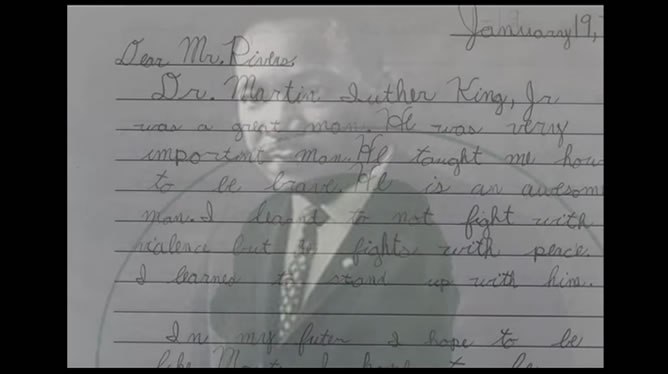 January 19,
Dear Mr. Rivera,
Dr. Martin Luther King, Jr
was a great man. He was very
important man. He taught me how
to be brave. He is an awesom
man. I learnt to not fight with
vialence but to fights with peace.
I learned to stand up with him.
In my futer I hope to be
like Mart I to be